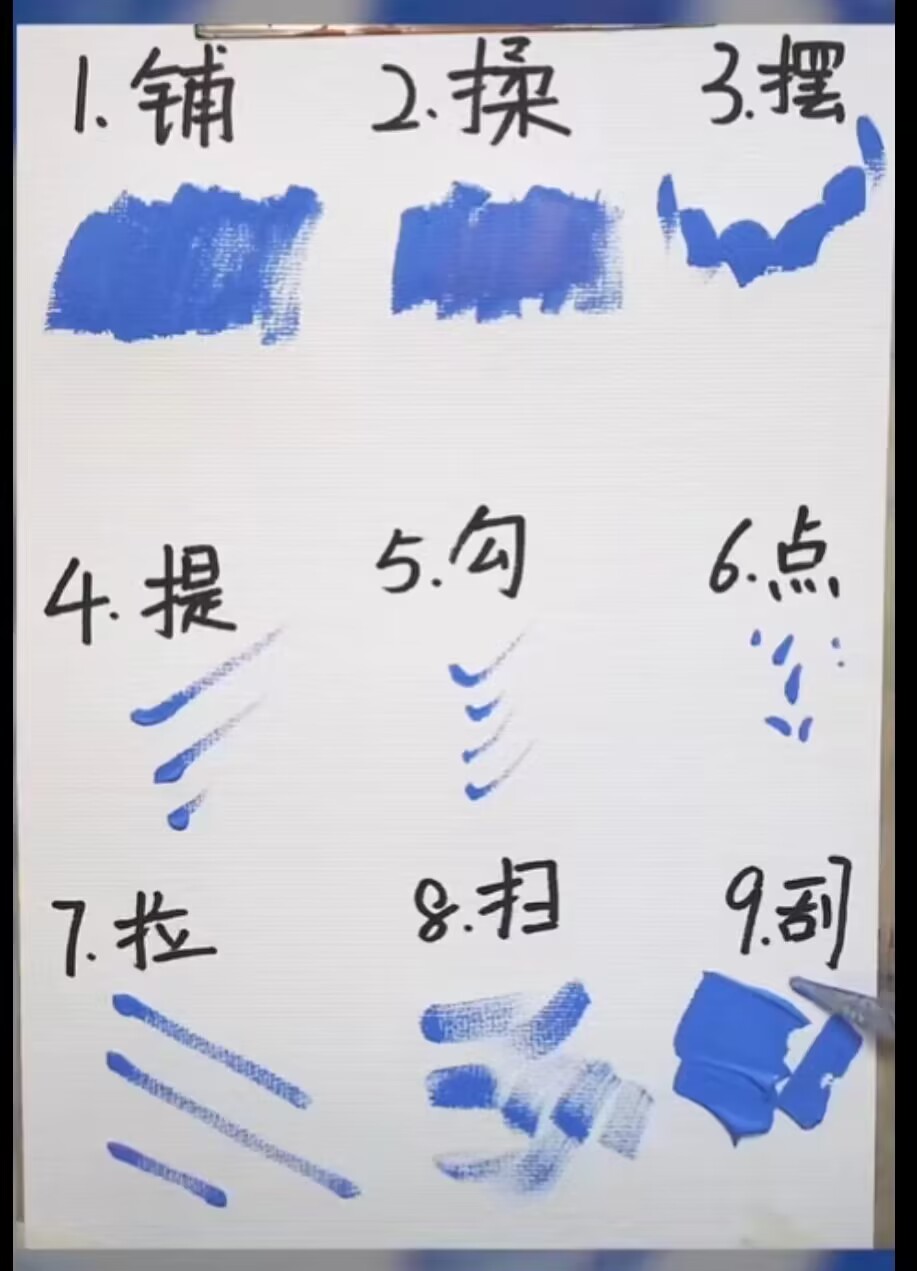 1.铺 2.揉 3.摆
4.提 5.勾 6.点
7.拉 8.扫 9.刮